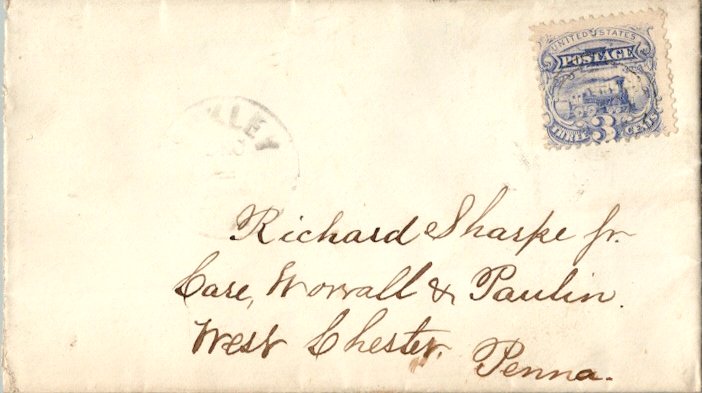 UNITED STATES
POSTAGE
THREE 3 CENTS
LLEY
Richard Sharpe Jr.
Care, Worrall & Paulin.
West Chester,
Penna.